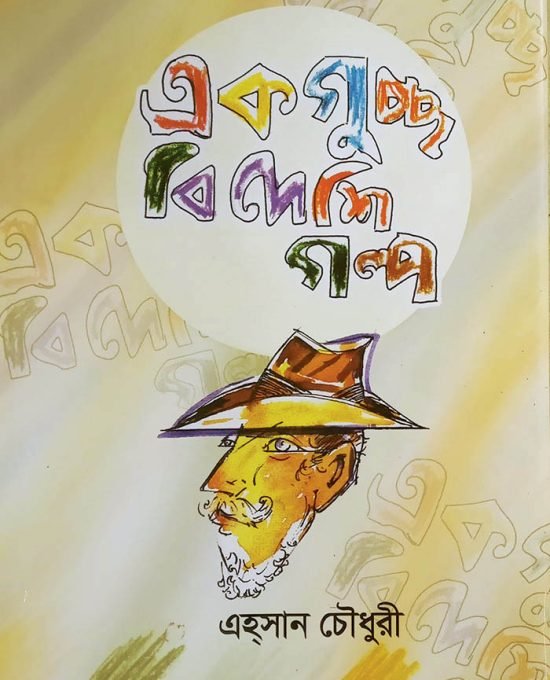 একগুচ্ছ
বিদেশি
গল্প
এহ্‌সান চৌধুরী